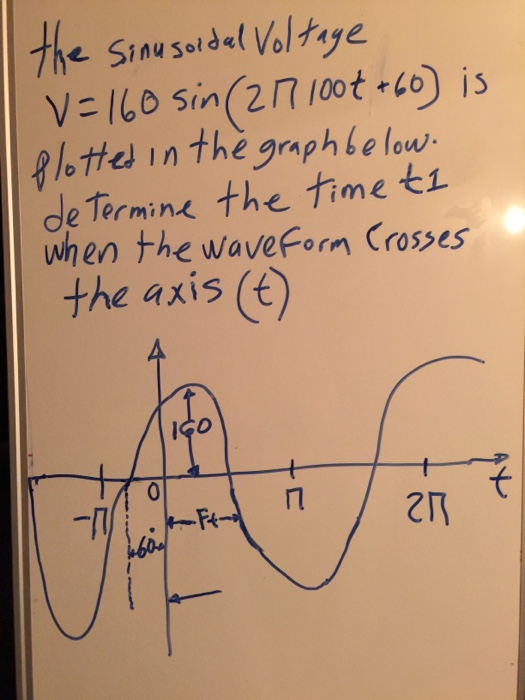 the Sinusoidal Voltage
V = 160 sin(2Π 100t + 60) is
plotted in the graph below.
determine the time t1
when the waveform Crosses
the axis (t)
160
0
-Π
Π
2Π
t
60